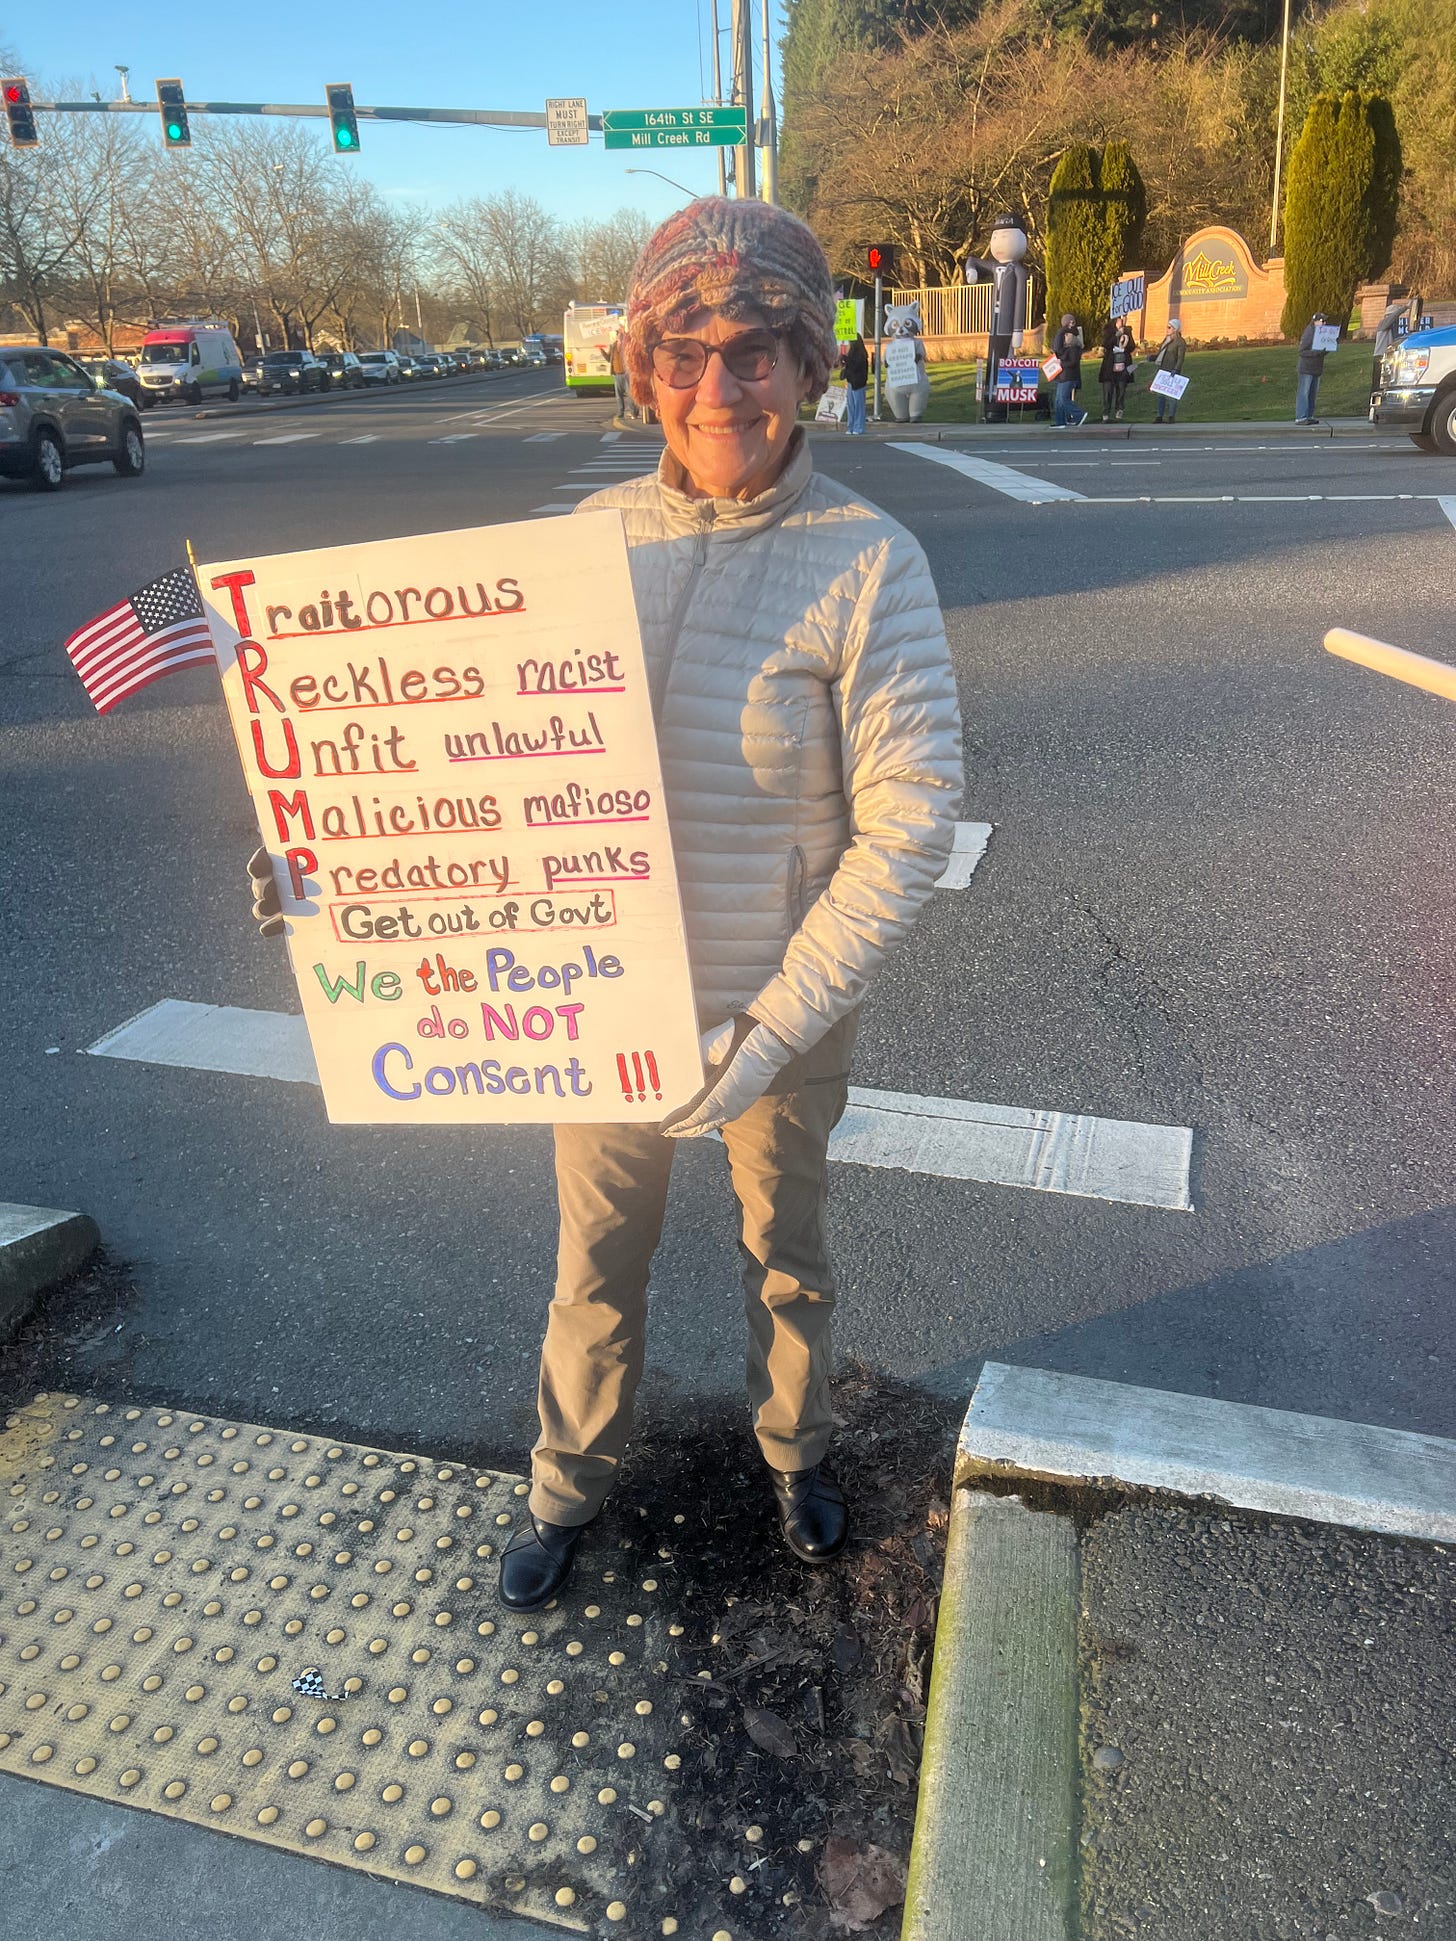 RIGHT LANE
MUST
TURN RIGHT
EXCEPT
TRANSIT
164th St SE
Mill Creek Rd
Mill Creek
COMMUNITY ASSOCIATION
OUT
for GOOD
BOYCOTT
MUSK
Traitorous
Reckless racist
Unfit unlawful
Malicious mafioso
Predatory punks
Get out of Govt
We the People
do NOT
Consent !!!